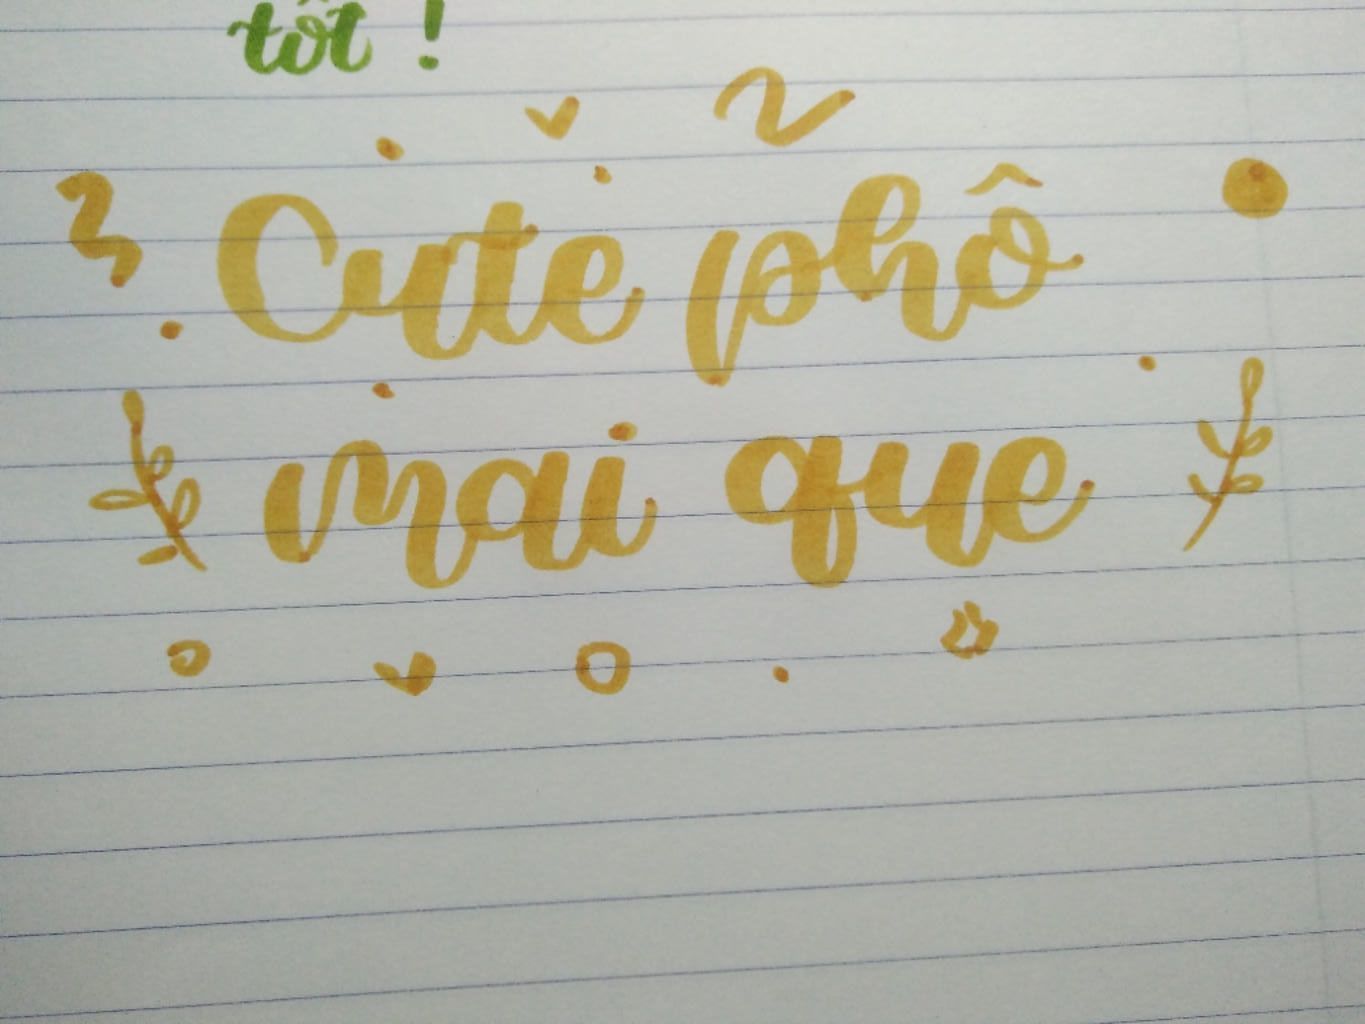 tốt !
Cute phô
mai que